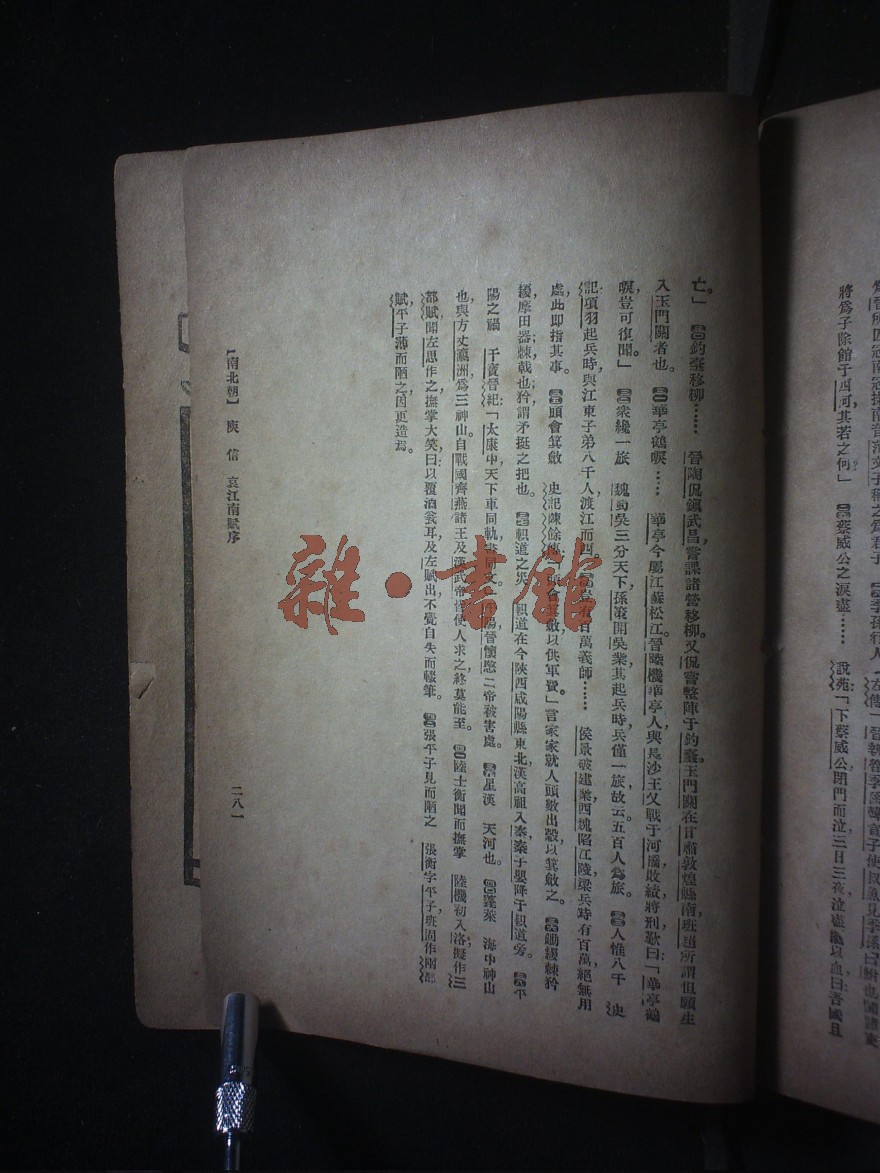 將爲子除館于西河其若之何」 蔡威公之淚盡…… 說苑：「下蔡威公閉門而泣三日三夜泣盡繼以血曰吾國且
亡。」 釣臺移柳…… 晉陶侃鎮武昌，嘗課諸營移柳。又侃嘗整陣于釣臺。玉門關在甘肅敦煌縣南，班超所謂但願生
入玉門關者也。 華亭鶴唳…… 華亭今屬江蘇松江。晉陸機華亭人，與長沙王乂戰于河橋，敗績，將刑，歎曰：「華亭鶴
唳，豈可復聞」 衆纔一旅 魏蜀吳三分天下，孫策開吳業，其起兵時，兵僅一旅，故云。五百人爲旅。 人惟八千 史
記項羽起兵時，與江東子弟八千人渡江而西。 豈有百萬義師…… 侯景破建業，西魏陷江陵，梁兵時有百萬，絕無用
處，此即指其事。 頭會箕斂 史記陳餘傳「頭會箕斂，以供軍費」言家家就人頭數出穀，以箕斂之。 鋤耰棘矜
耰，摩田器；棘，戟也；矜，謂矛鋋之把也。 軹道之災 軹道在今陝西咸陽縣東北，漢高祖入秦，秦子嬰降于軹道旁。 平
陽之禍 干寶晉紀：「太康中，天下車同軌，書同文。」平陽，晉懷愍二帝被害處。 星漢 天河也。 蓬萊 海中神山
也，與方丈瀛洲爲三神山。自戰國齊燕諸王及漢武帝皆使人求之，終莫能至。 陸士衡聞而撫掌 陸機初入洛，擬作三
都賦，聞左思作之，撫掌大笑曰：以覆酒瓮耳，及左賦出，不覺自失而輟筆。 張平子見而陋之 張衡字平子，班固作兩都
賦，平子薄而陋之，因更造焉。
【南北朝】 庾信 哀江南賦序
二八一
雜·書館